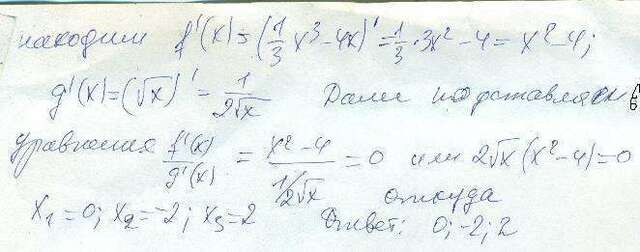 находим f'(x) = (1/3 x³ - 4x)' = 1/3 · 3x² - 4 = x² - 4;
g'(x) = (√x)' = 1/2√x Далее подставляем в
уравнения f'(x)/g'(x) = x² - 4 / 1/2√x = 0 или 2√x (x² - 4) = 0
откуда
x₁ = 0; x₂ = -2; x₃ = 2 Ответ: 0; -2; 2